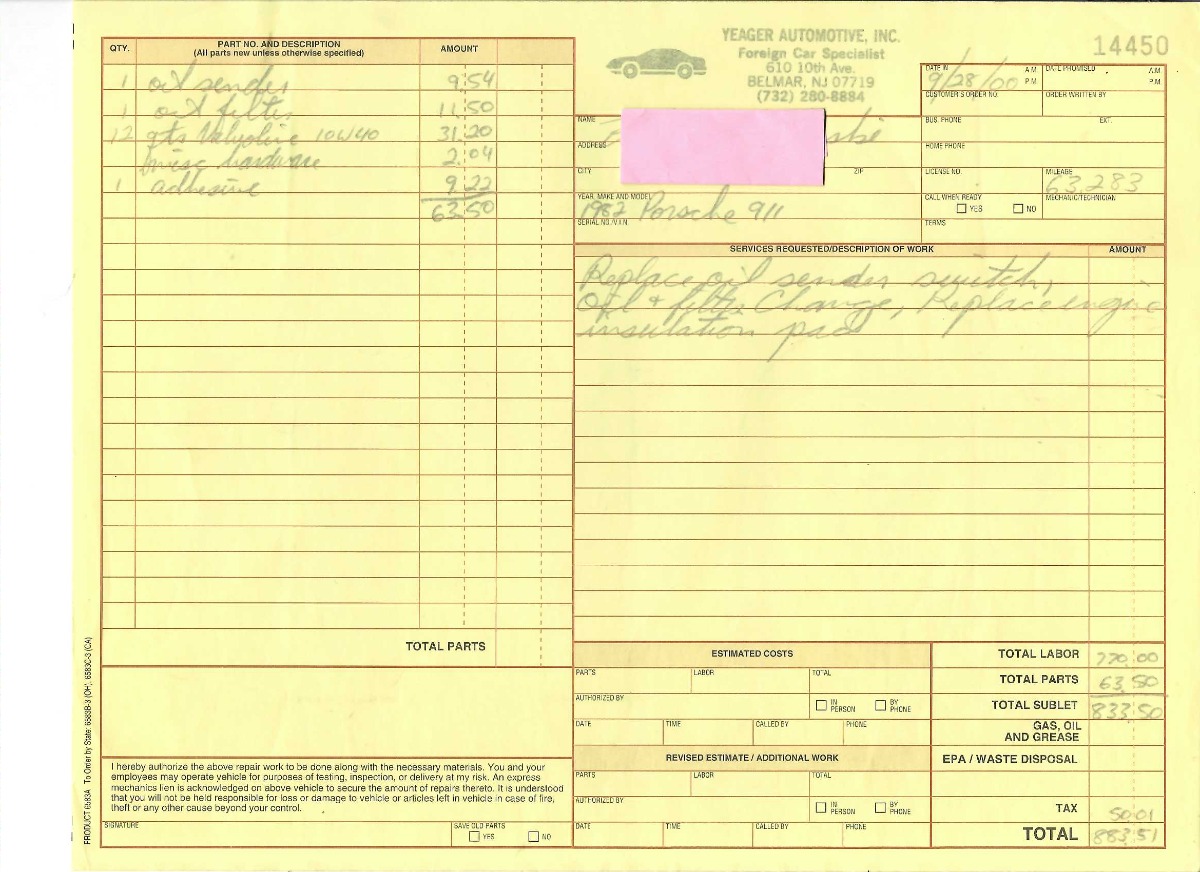 YEAGER AUTOMOTIVE, INC.
Foreign Car Specialist
610 10th Ave.
BELMAR, NJ 07719
(732) 280-8884
14450
QTY. PART NO. AND DESCRIPTION AMOUNT
(All parts new unless otherwise specified)
1 oil sender 9.54
1 oil filter 11.50
12 qts Valvoline 10W40 31.20
misc hardware 2.04
1 adhesive 9.22
63.50
TOTAL PARTS
DATE IN 9/28/00 A.M. P.M. DATE PROMISED A.M. P.M.
CUSTOMER'S ORDER NO. ORDER WRITTEN BY
NAME BUS. PHONE EXT.
ADDRESS HOME PHONE
CITY ZIP LICENSE NO. MILEAGE 63,283
YEAR, MAKE AND MODEL 1982 Porsche 911 CALL WHEN READY YES NO MECHANIC/TECHNICIAN
SERIAL NO./V.I.N. TERMS
SERVICES REQUESTED/DESCRIPTION OF WORK AMOUNT
Replace oil sender switch,
Oil & filter Change, Replace engine
insulation pad
ESTIMATED COSTS
PARTS LABOR TOTAL
AUTHORIZED BY IN PERSON BY PHONE
DATE TIME CALLED BY PHONE
REVISED ESTIMATE / ADDITIONAL WORK
PARTS LABOR TOTAL
AUTHORIZED BY IN PERSON BY PHONE
DATE TIME CALLED BY PHONE
TOTAL LABOR 770.00
TOTAL PARTS 63.50
TOTAL SUBLET 833.50
GAS, OIL
AND GREASE
EPA / WASTE DISPOSAL
TAX 50.01
TOTAL 883.51
I hereby authorize the above repair work to be done along with the necessary materials. You and your
employees may operate vehicle for purposes of testing, inspection, or delivery at my risk. An express
mechanics lien is acknowledged on above vehicle to secure the amount of repairs thereto. It is understood
that you will not be held responsible for loss or damage to vehicle or articles left in vehicle in case of fire,
theft or any other cause beyond your control.
SIGNATURE SAVE OLD PARTS YES NO
PRODUCT 6583A To Order by State: 6583B-3 (OH), 6583C-3 (CA)